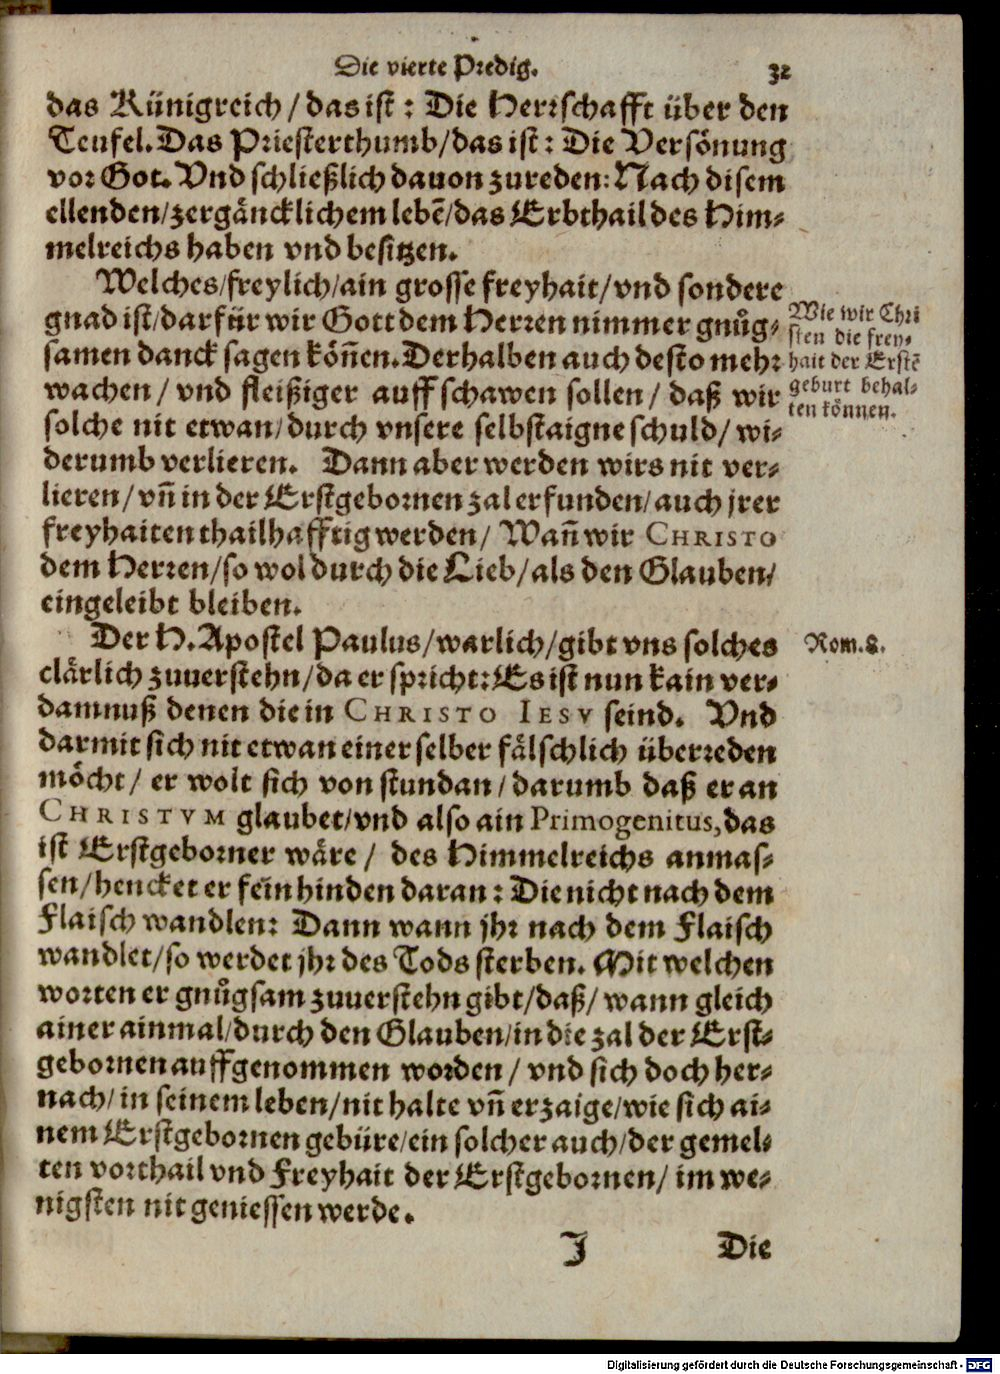 Die vierte Predig. 32
das Künigreich / das ist : Die Herrschafft über den
Teufel. Das Priesterthumb/das ist : Die Versönung
vor Got. Vnd schließlich dauon zureden: Nach disem
ellenden/zergäncklichem lebē/das Erbthail des Him-
melreichs haben vnd besitzen.
Welches/freylich/ain grosse freyhait/vnd sondere
gnad ist/darfür wir Gott dem Herren nimmer gnůg-
samen danck sagen köñen. Derhalben auch desto mehr
wachen / vnd fleißiger auff schawen sollen / daß wir
solche nit etwan/durch vnsere selbstaigne schuld/ wi-
derumb verlieren. Dann aber werden wirs nit ver-
lieren/vñ in der Erstgebornen zal erfunden/auch jrer
freyhaiten thailhafftig werden/ Wañ wir CHRISTO
dem Herren/so wol durch die Lieb/als den Glauben/
eingeleibt bleiben.
Wie wir Chri
sten die frey-
hait der Erstē
geburt behal-
ten können.
Der H. Apostel Paulus/warlich/gibt vns solches
clärlich zuuerstehn/da er spricht: Es ist nun kain ver-
damnuß denen die in CHRISTO IESV seind. Vnd
darmit sich nit etwan einer selber fälschlich überreden
möcht/ er wolt sich von stundan/darumb daß er an
CHRISTVM glaubet/vnd also ain Primogenitus, das
ist Erstgeborner wäre / des Himmelreichs anmas-
sen/hencket er fein hinden daran : Die nicht nach dem
Flaisch wandlen: Dann wann jhr nach dem Flaisch
wandlet/so werdet jhr des Tods sterben. Mit welchen
worten er gnůgsam zuuerstehn gibt/daß/wann gleich
ainer ainmal/durch den Glauben/in die zal der Erst-
gebornen auffgenommen worden / vnd sich doch her-
nach/in seinem leben/nit halte vñ erzaige/wie sich ai-
nem Erstgebornen gebüre/ein solcher auch/der gemel-
ten vorthail vnd Freyhait der Erstgebornen/ im we-
nigsten nit geniessen werde.
Rom. 8.
J Die
Digitalisierung gefördert durch die Deutsche Forschungsgemeinschaft - DFG